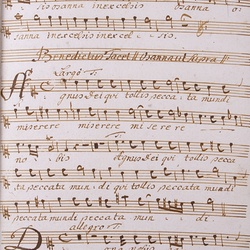 osanna in excelsis osanna
osanna in excelsis osis
Benedictus Tacet // Osanna ut supra //
Largo
Agnus Dei qui tollis pecca ta mundi
miserere miserere miserere
no sis Agnus Dei qui tollis pecca
ta peccata mun di qui tollis peccata mundi
peccata mundi peccata mun di
allegro
Dona nobis